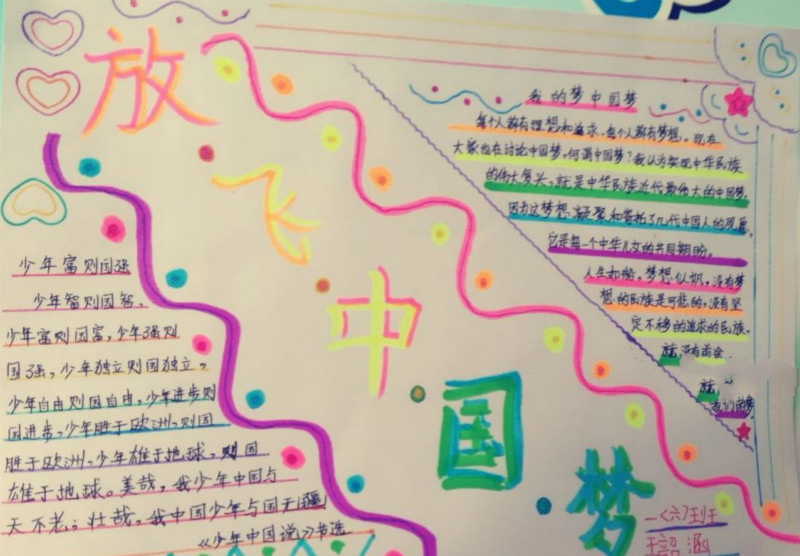 放飞中国梦
少年富则国强
少年智则国智。
少年富则国富,少年强则
国强,少年独立则国独立,
少年自由则国自由,少年进步则
国进步,少年胜于欧洲,则国
胜于欧洲,少年雄于地球,则国
雄于地球。美哉,我少年中国与
天不老,壮哉,我中国少年与国无疆
《少年中国说》节选
我的梦中国梦
每个人都有理想和追求,每个人都有梦想。现在
大家也在讨论中国梦,何谓中国梦?我认为实现中华民族
的伟大复兴,就是中华民族近代最伟大的中国梦。
因为这梦想,凝聚和寄托了几代中国人的夙愿,
它是每一个中华儿女的共同期盼。
人生如船,梦想似帆,没有梦
想的民族是可悲的,没有坚
定不移的追求的民族,
就没有前途。
就
我们的梦
一(六)班
涵